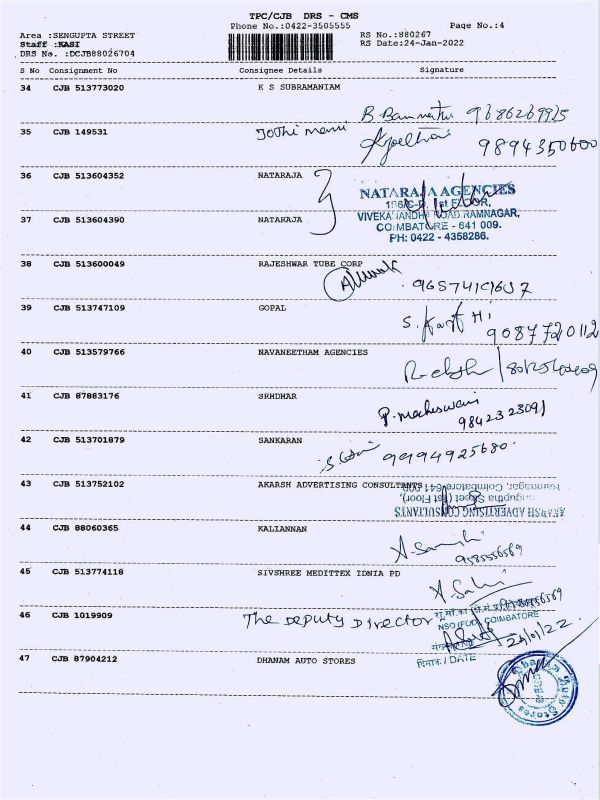 TPC/CJB DRS - CMS
Phone No.:0422-3505555 Page No.:4
Area :SENGUPTA STREET RS No.:880267
Staff :KASI RS Date:24-Jan-2022
DRS No. :DCJB88026704
S No Consignment No Consignee Details Signature
34 CJB 513773020 K S SUBRAMANIAM
35 CJB 149531 Jothi mani
9894350600
36 CJB 513604352 NATARAJA
NATARAJA AGENCIES
196/C-D, 1st FLOOR,
37 CJB 513604390 NATARAJA
VIVEKANANDHA ROAD, RAMNAGAR,
COIMBATORE - 641 009.
PH: 0422 - 4358286.
38 CJB 513600049 RAJESHWAR TUBE CORP
39 CJB 513747109 GOPAL
9087720112
40 CJB 513579766 NAVANEETHAM AGENCIES
41 CJB 87883176 SRHDHAR
P. Maheswari
9842323091
42 CJB 513701879 SANKARAN
9994925680
43 CJB 513752102 AKARSH ADVERTISING CONSULTANTS
Ramnagar, Coimbatore-641 009
AKARSH ADVERTISING CONSULTANTS
44 CJB 88060365 KALIANNAN
9585556569
45 CJB 513774118 SIVSHREE MEDITTEX IDNIA PD
46 CJB 1019909 The Deputy Director
NSO (FOD) COIMBATORE
24/01/22
दिनांक / DATE
47 CJB 87904212 DHANAM AUTO STORES
Auto Stores